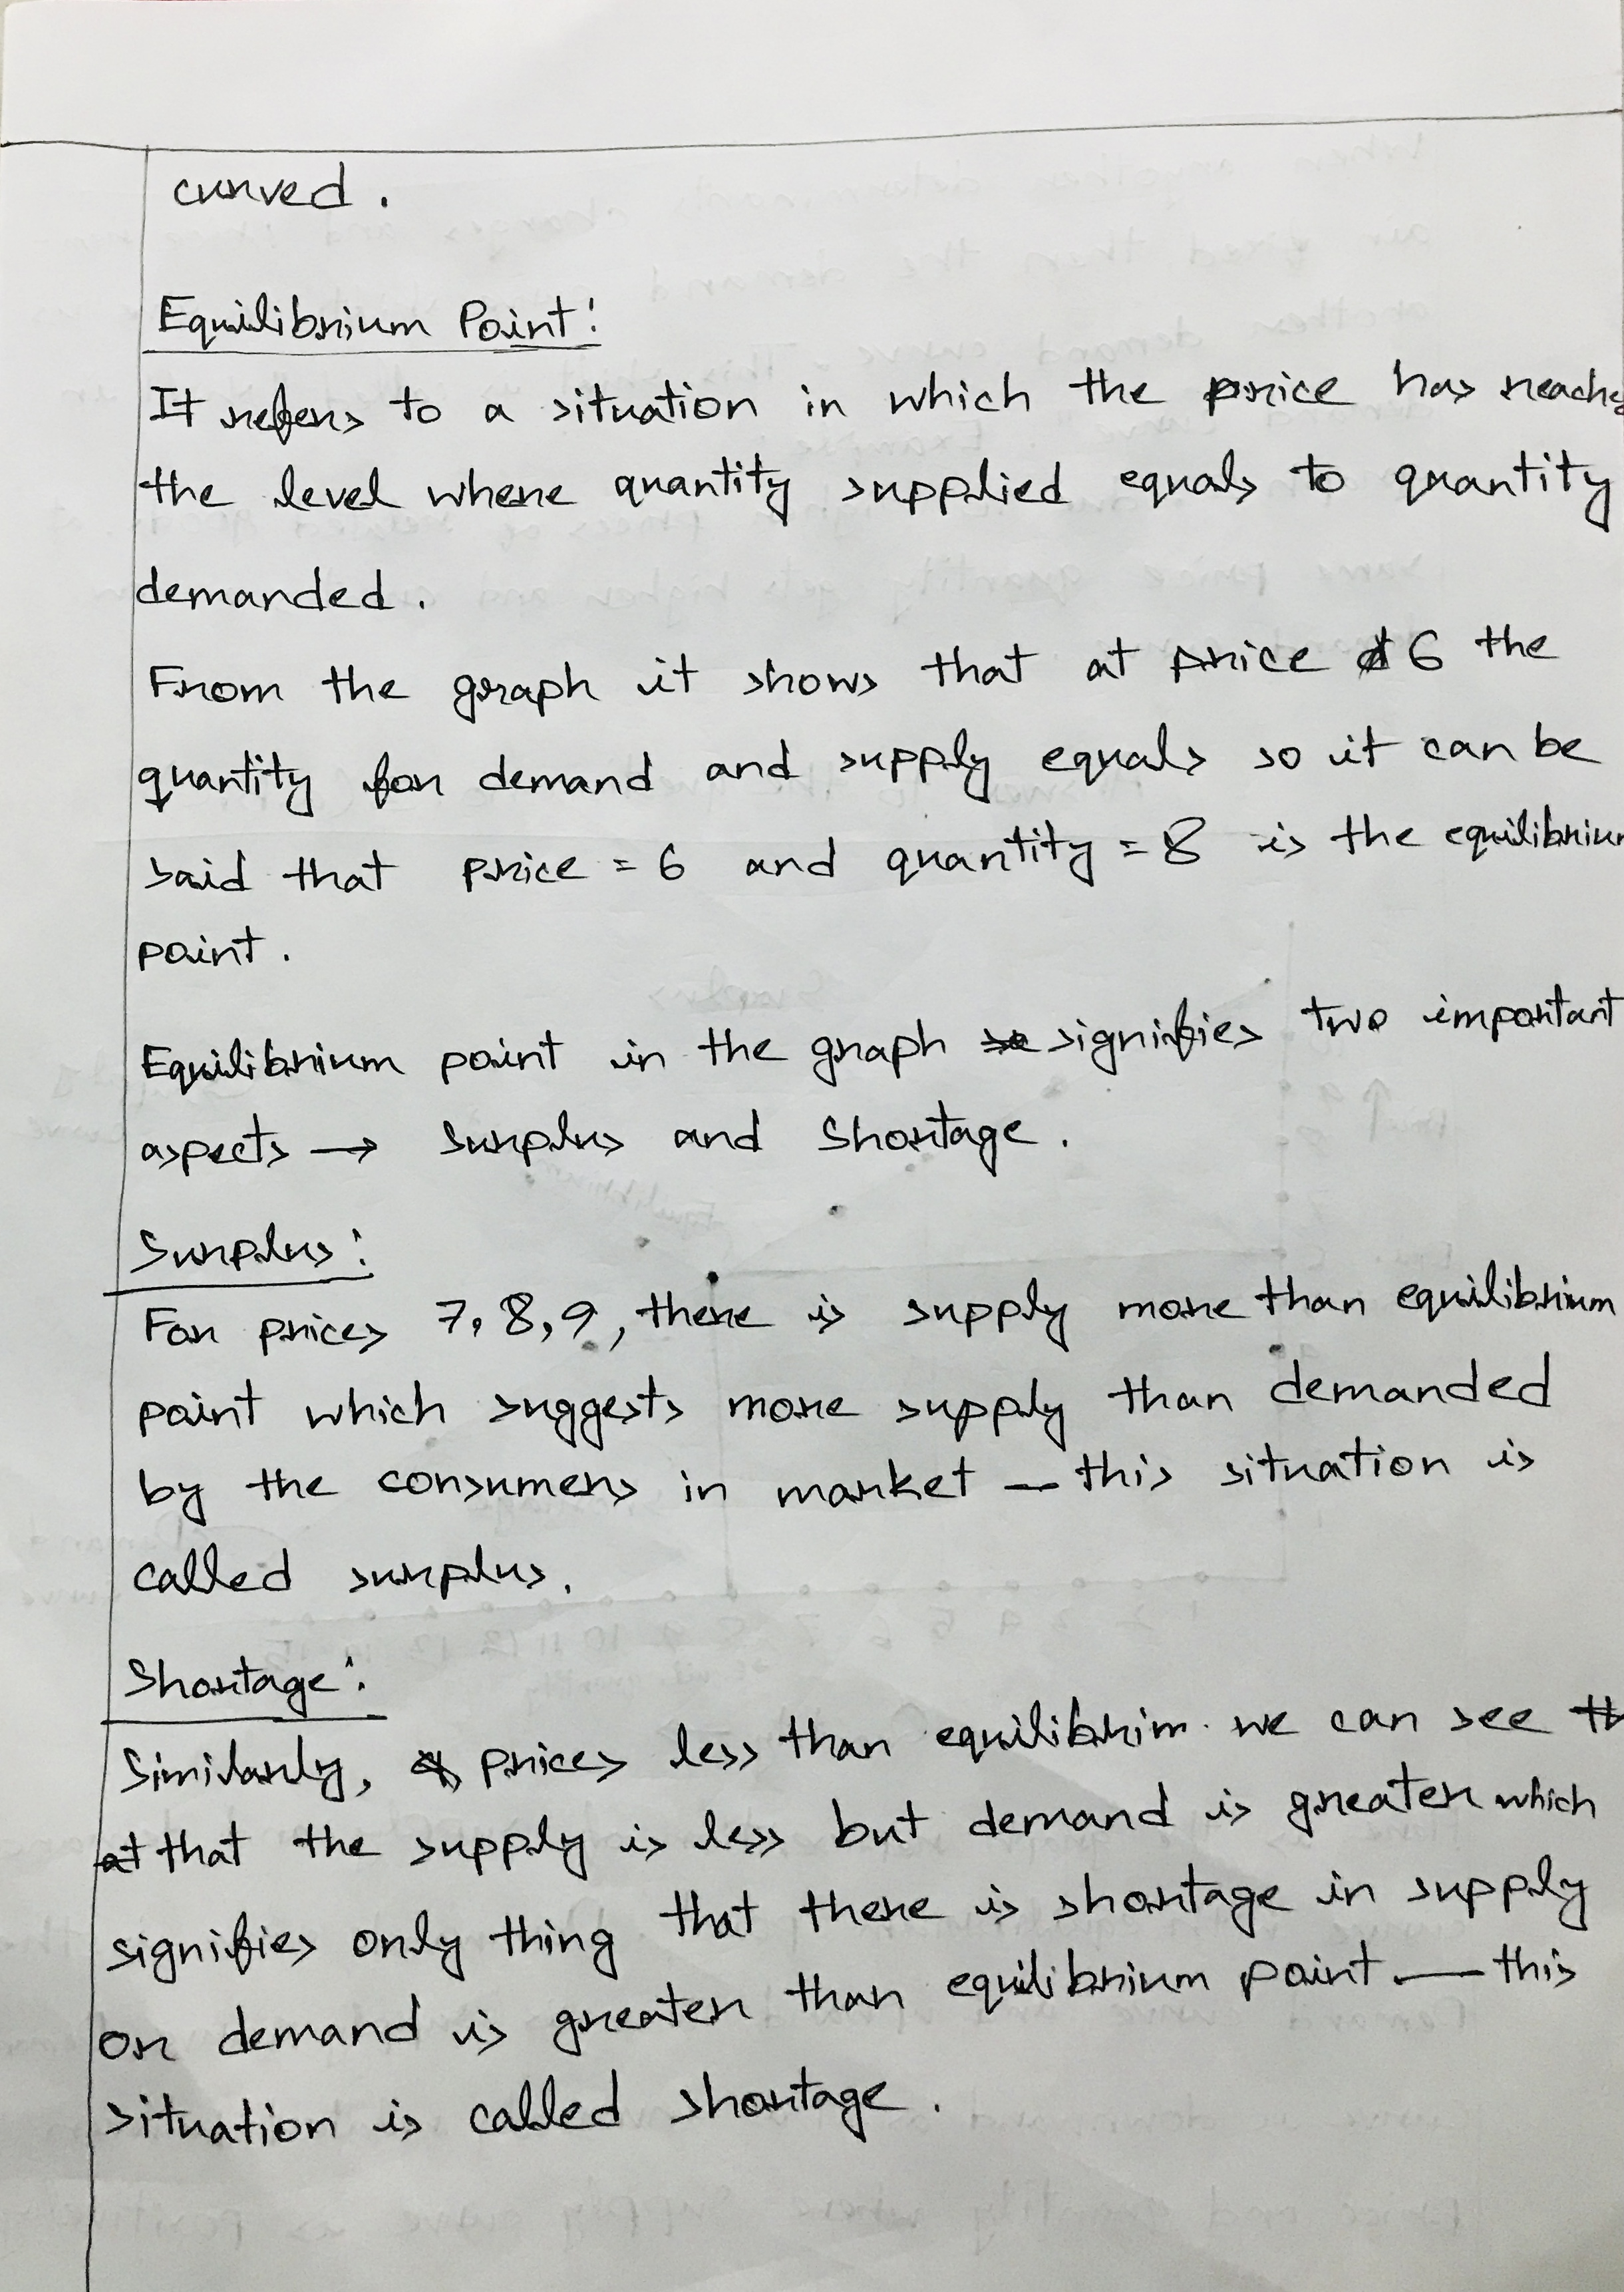 curved.
Equilibrium Point:
It refers to a situation in which the price has reache
the level where quantity supplied equals to quantity
demanded.
From the graph it shows that at price 6 the
quantity for demand and supply equals so it can be
said that price = 6 and quantity = 8 is the equilibrium
point.
Equilibrium point in the graph signifies two important
aspects → Surplus and Shortage.
Surplus:
For prices 7, 8, 9, there is supply more than equilibrium
point which suggests more supply than demanded
by the consumers in market — this situation is
called surplus.
Shortage:
Similarly, prices less than equilibrim. we can see th
at that the supply is less but demand is greater which
signifies only thing that there is shortage in supply
or demand is greater than equilibrium point — this
situation is called shortage.